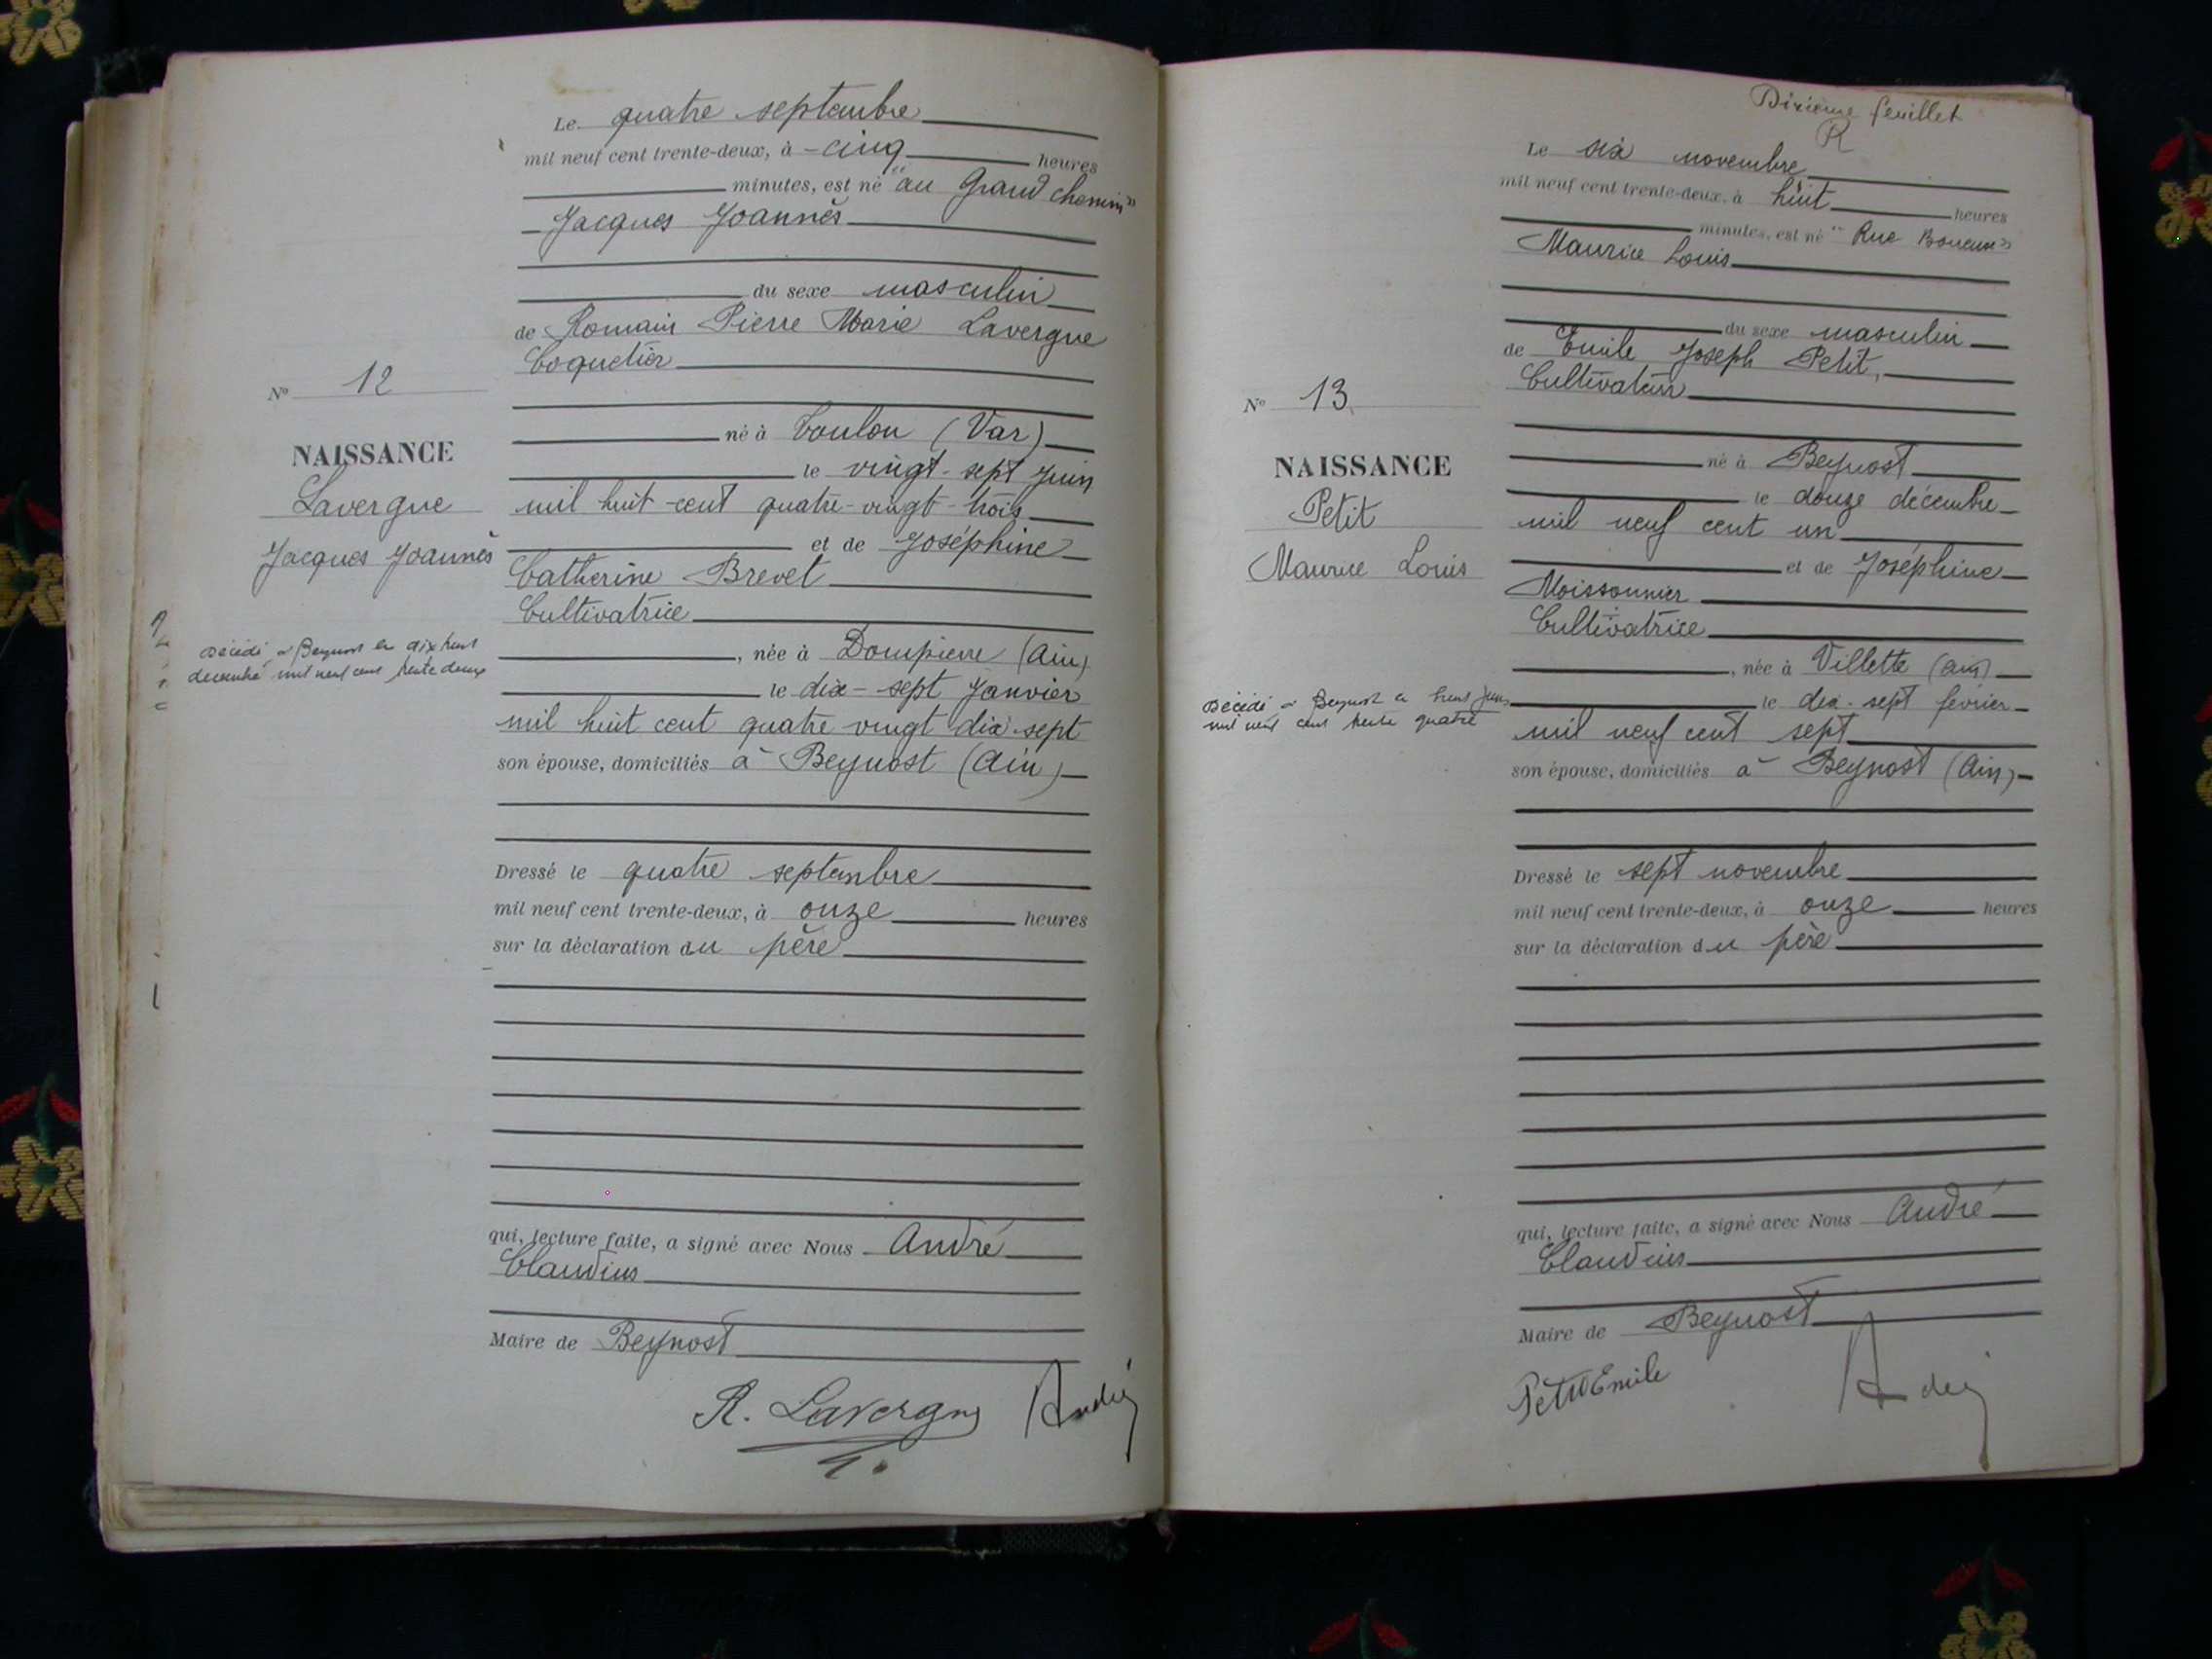 Le quatre septembre
mil neuf cent trente-deux, à cinq heures
minutes, est né "au Grand chemin"
Jacques Joannès
du sexe masculin
de Romain Pierre Marie Lavergne
Coquetier
né à Toulon (Var)
le vingt-sept Juin
mil huit-cent quatre-vingt-trois
et de Joséphine
Catherine Brevet
Cultivatrice
, née à Dompierre (Ain)
le dix-sept Janvier
mil huit cent quatre vingt dix-sept
son épouse, domiciliés à Beynost (Ain)
Dressé le quatre septembre
mil neuf cent trente-deux, à onze heures
sur la déclaration du père
qui, lecture faite, a signé avec Nous André
Claudius
Maire de Beynost
R. Lavergne André
No 12
NAISSANCE
Lavergne
Jacques Joannès
Décédé à Beynost le dix huit
décembre mil neuf cent trente deux
Dixième feuillet
R
Le six novembre
mil neuf cent trente-deux, à huit heures
minutes, est né "Rue Boueuse"
Maurice Louis
du sexe masculin
de Emile Joseph Petit,
Cultivateur
né à Beynost
le douze décembre
mil neuf cent un
et de Joséphine
Moissonnier
Cultivatrice
, née à Villette (Ain)
le dix-sept février
mil neuf cent sept
son épouse, domiciliés à Beynost (Ain)
Dressé le sept novembre
mil neuf cent trente-deux, à onze heures
sur la déclaration du père
qui, lecture faite, a signé avec Nous André
Claudius
Maire de Beynost
Petit Emile André
No 13
NAISSANCE
Petit
Maurice Louis
Décédé à Beynost le huit Juin
mil neuf cent trente quatre